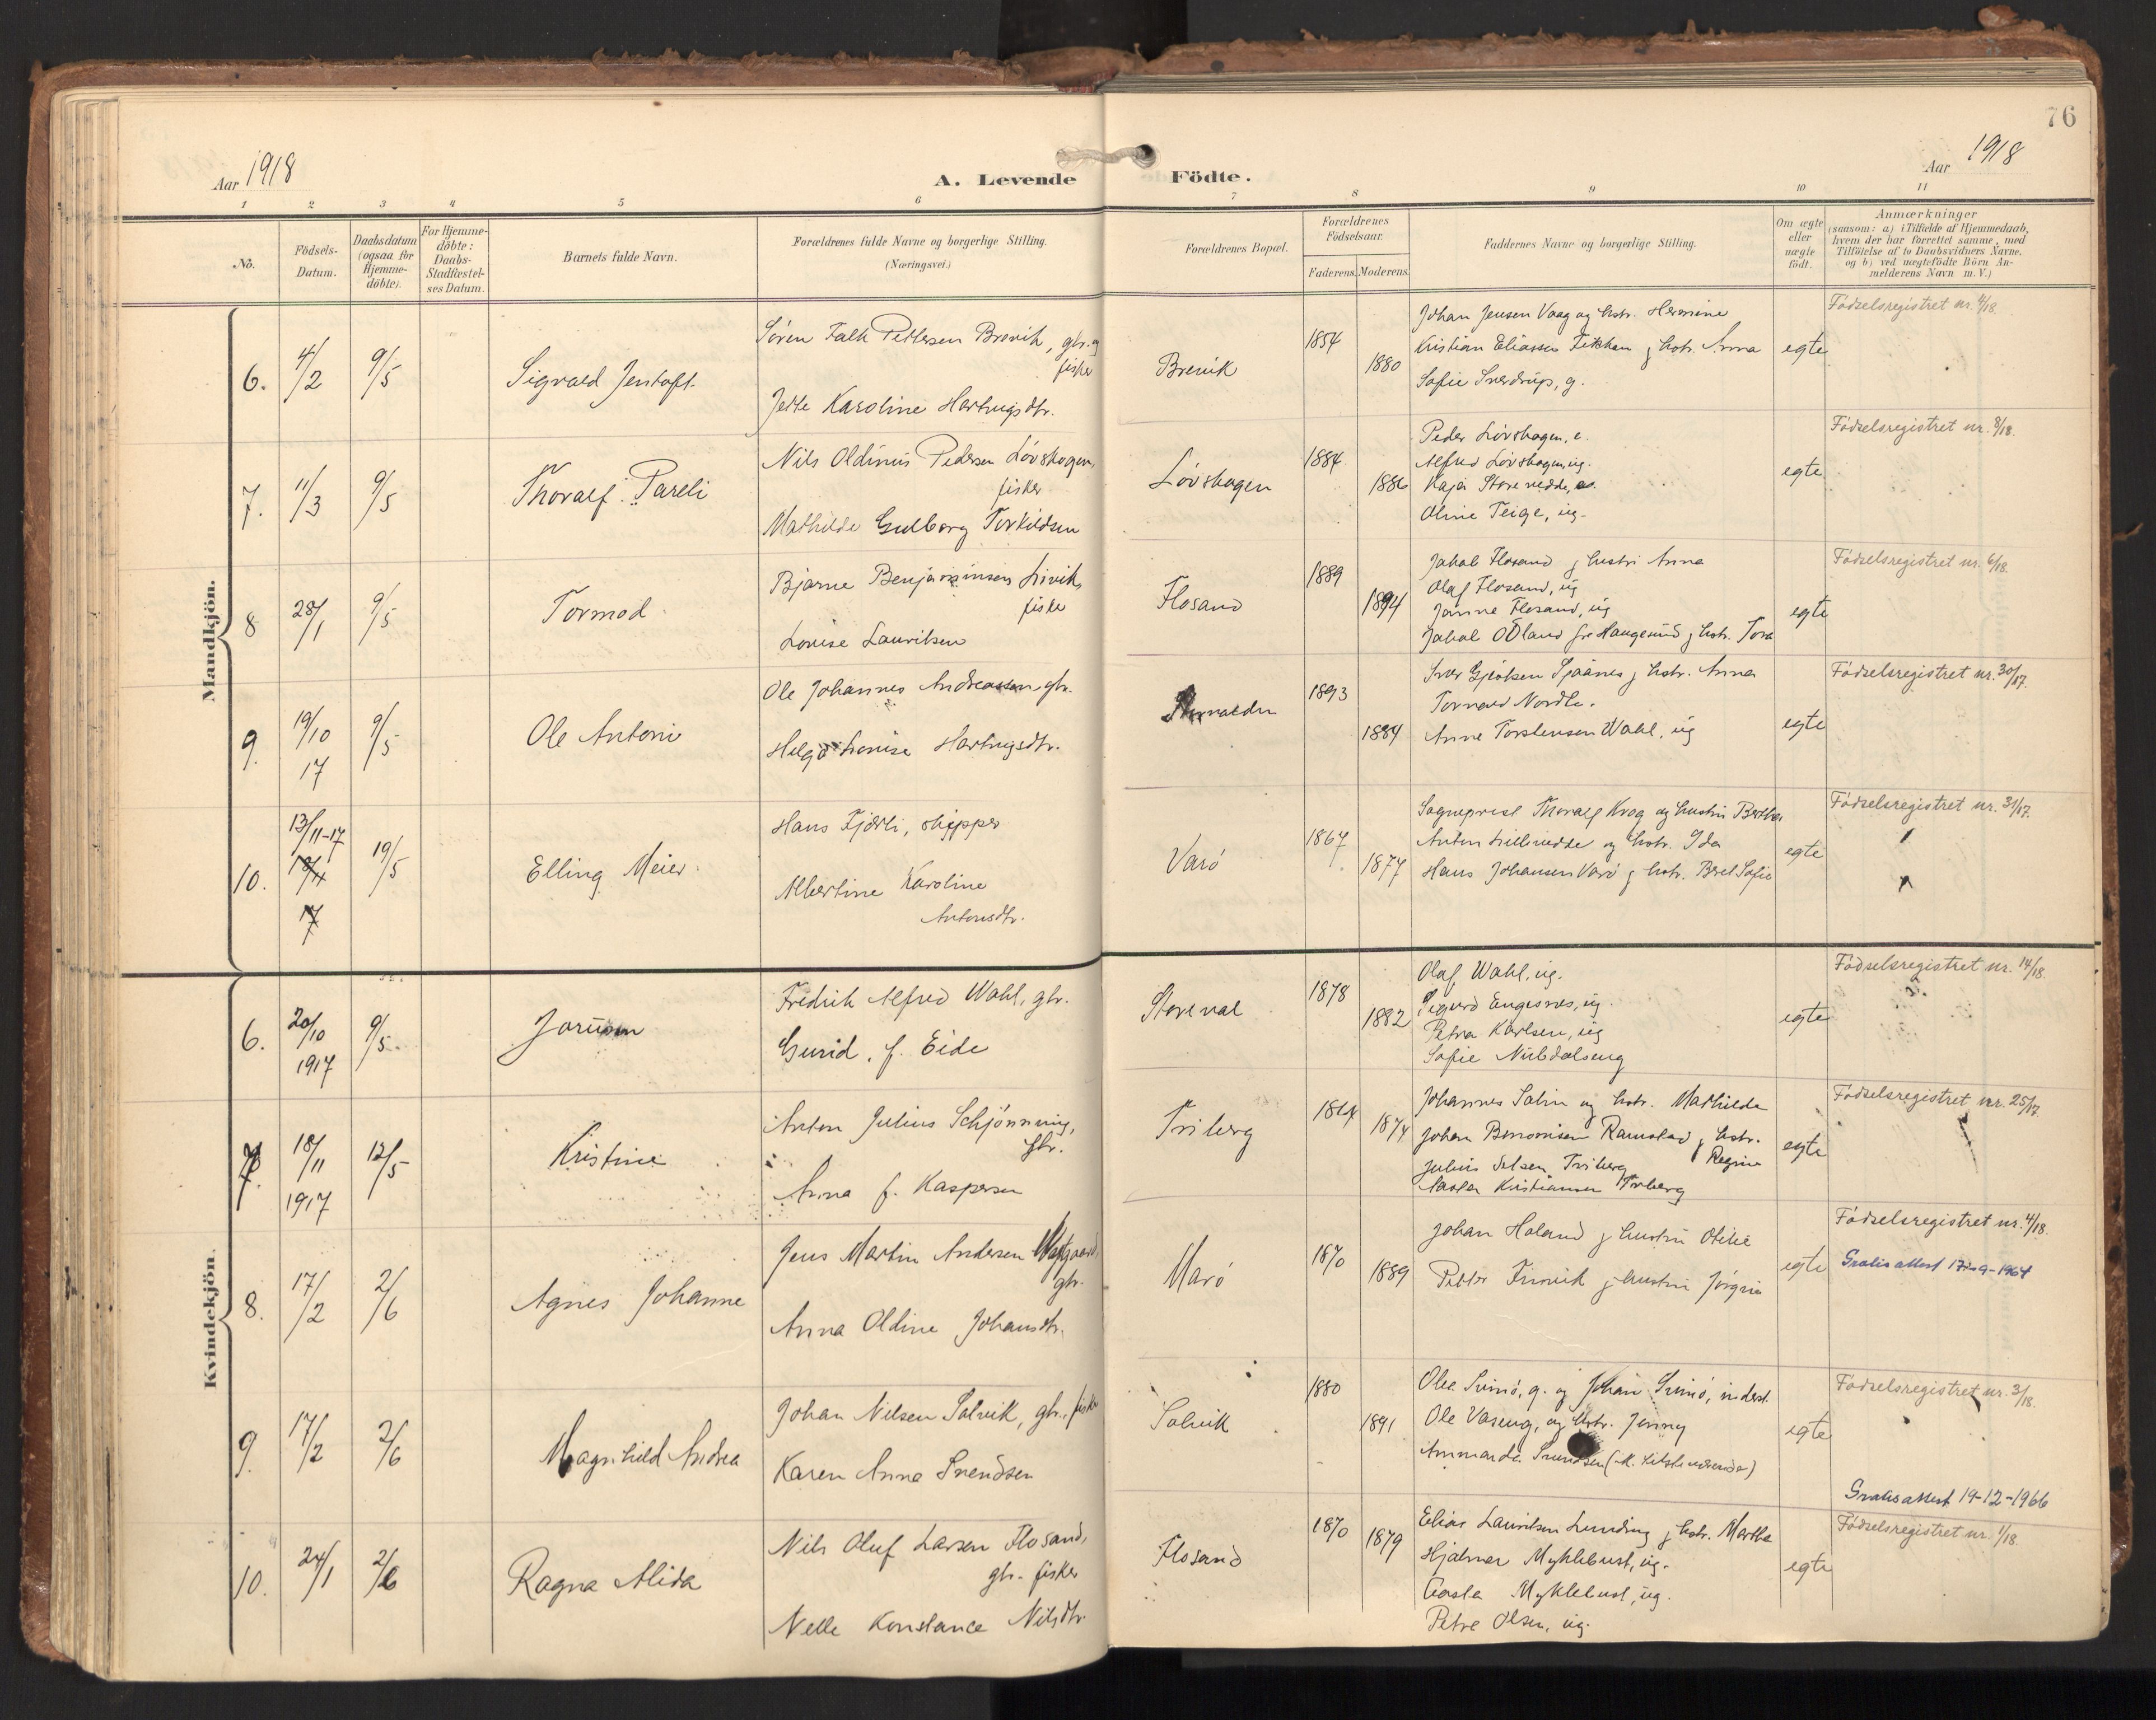 76
Aar 1918
A. Levende Födte.
Aar 1918
1 2 3 4 5 6 7 8 9 10 11
No.
Födsels-Datum.
Daabsdatum (ogsaa for Hjemme-döbte).
For Hjemme-döbte: Daabs-Stadfæstel-ses Datum.
Barnets fulde Navn.
Forældrenes fulde Navne og borgerlige Stilling.
(Næringsvei.)
Forældrenes Bopæl.
Forældrenes Födselsaar.
Faderens. Moderens.
Faddernes Navne og borgerlige Stilling.
Om ægte eller uægte födt.
Anmærkninger
(saasom: a) i Tilfælde af Hjemmedaab,
hvem der har forrettet samme, med
Tilföielse af to Daabsvidners Navne,
og b) ved uægtefödte Börn An-
melderens Navn m. V.)
Mandkjön.
6. 4/2 9/5 Sigvald Jentoft
Sören Falk Pettersen Brevik, gbr. og
fisker
Jette Karoline Hartvigsdtr.
Brevik 1854 1880
Johan Jensen Vaag og hstr. Hermine
Kristian Eliassen og hstr. Anna
Sofie Sverdrup, g.
egte
Födselsregistret nr. 4/18.
7. 11/3 9/5 Thoralf Pareli
Nils Oldinus Pedersen Lövskogen,
fisker
Mathilde Gulborg Torkildsen
Lövskogen 1884 1886
Peder Lövskogen, e.
Alfred Lövskogen, ug.
Kaja Storevedde,
Oline Teige, ug.
egte
Födselsregistret nr. 8/18.
8 28/1 9/5 Tormod
Bjarne Benjaminsen
fisker
Louise Lauritsen
Flosand 1889 1894
Jakob Flosand og hustru Anna
Olaf Flosand, ug
Janne Flosand, ug
Jakob Ödland fra Haugesund og hstr. Tora
egte
Födselsregistret nr. 6/18.
9. 19/10 17 9/5 Ole Antoni
Ole Johannes Andreassen gbr.
Helga Louise Hartvigsdtr.
1893 1884
Anna
Tornard Nordli.
Anne Torstensen Wahl, ug
egte
Födselsregistret nr. 30/17.
10. 13/11-17 19/5 Elling Meier
Hans Fjærli, skipper
Albertine Karoline
Antonsdtr.
Varö 1867 1877
Sogneprest Thoralf Krog og hustru Berthe
Anton Lillevedde og hstr. Ida
Hans Johansen Varö og hstr. Beret Sofie
egte
Födselsregistret nr. 31/17.
Kvindekjön.
6. 20/10 1917 9/5 Jorunn
Fredrik Alfred Wahl, gbr.
Gurid, f. Eide
Storeval 1878 1882
Olaf Wahl, ug.
Sigurd Engesnes, ug.
Petra Karlsen, ug
Sofie Nubdalseng
egte
Födselsregistret nr. 14/18.
7. 18/11 1917 12/5 Kristine
Anton Julius Schjönning,
gbr.
Anna f. Kaspersen
Friberg 1864 1874
Johannes Salin og hstr. Mathilde
Johan Benonisen Ramstad og hstr.
Regine
Julius Friberg
Kristiansen Friberg
egte
Födselsregistret nr. 25/17.
8. 17/2 2/6 Agnes Johanne
Jens Martin Andersen
gbr.
Anna Oldine Johansdtr.
Marö 1870 1889
Johan Haland og hustru Otilie
Petter Finvik og hustru Jörgine
egte
Födselsregistret nr. 4/18.
Gratis attest 17-9-1964
9. 17/2 2/6 Magnhild Andrea
Johan Nilsen Salvik, gbr., fisker
Karen Anna Svendsen
Salvik 1880 1891
Ole Svinö, g. og Johan Svinö, inderst.
Ole Vaseng, og hstr. Jenny
Ammanda Svendsen
egte
Födselsregistret nr. 3/18.
Gratis attest 19-12-1966
10. 24/1 2/6 Ragna Alida
Nils Oluf Larsen Flosand,
gbr. fisker
Nelle Konstance Nilsdtr.
Flosand 1870 1879
Elias Lauritsen Lunding og hstr. Martha
Hjalmar Myklebust, ug.
Myklebust, ug.
Petra Olsen, ug.
egte
Födselsregistret nr. 1/18.